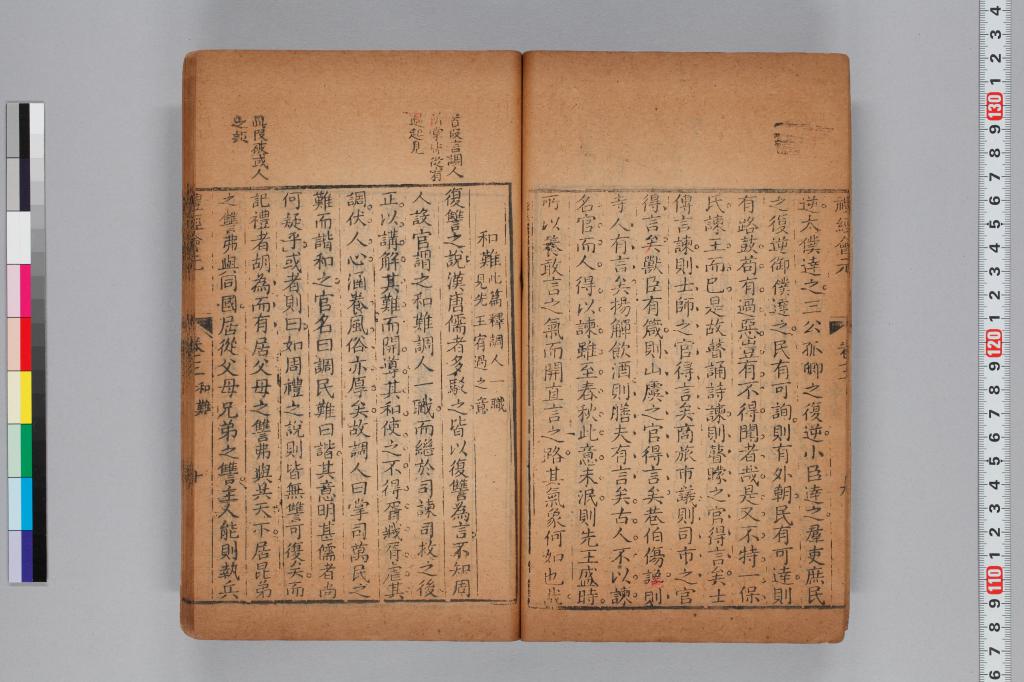 禮經會元
卷三
九
逆太僕達之三公孤卿之復逆小臣達之羣吏庶民
之復逆御僕達之民有可詢則有外朝民有可達則
有路鼓苟有過惡豈有不得聞者哉是又不特一保
氏諫王而已是故瞽誦詩諫則瞽矇之官得言矣士
傳言諫則士師之官得言矣商旅市議則司市之官
得言矣獸臣有箴則山虞之官得言矣巷伯傷讒則
寺人有言矣揚觶飲酒則膳夫有言矣古人不以諫
名官而人得以諫雖至春秋此意未泯則先王盛時
所以養敢言之氣而開直言之路其氣象何如也哉
和難
此篇釋調人一職
見先王宥過之意
復讐之說漢唐儒者多駁之皆以復讐為言不知周
人設官謂之和難調人一職而繼於司諫司救之後
正以講解其難而開導其和使之不得胥戕胥虐其
調伏人心涵養風俗亦厚矣故調人曰掌司萬民之
難而諧和之官名曰調民難曰諧其意明甚儒者尚
何疑乎或者則曰如周禮之說則皆無讐可復矣而
記禮者胡為而有居父母之讐弗與共天下居昆弟
之讐弗與同國居從父母兄弟之讐主人能則執兵
禮經會元
卷三
和難
十